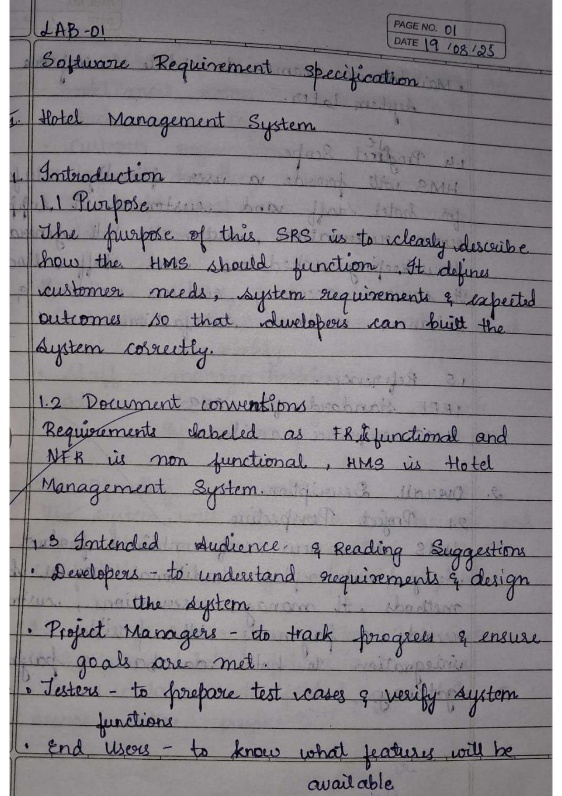 LAB-01
PAGE NO. 01
DATE 19/08/25
Software Requirement Specification
I. Hotel Management System
1. Introduction
1.1 Purpose
The purpose of this SRS is to clearly describe
how the HMS should function. It defines
customer needs, system requirements & expected
outcomes so that developers can built the
system correctly.
1.2 Document conventions
Requirements labeled as FR is functional and
NFR is non functional, HMS is Hotel
Management System.
1.3 Intended Audience & Reading Suggestions
• Developers - to understand requirements & design
the system
• Project Managers - to track progress & ensure
goals are met.
• Testers - to prepare test cases & verify system
functions
• End Users - to know what features will be
available